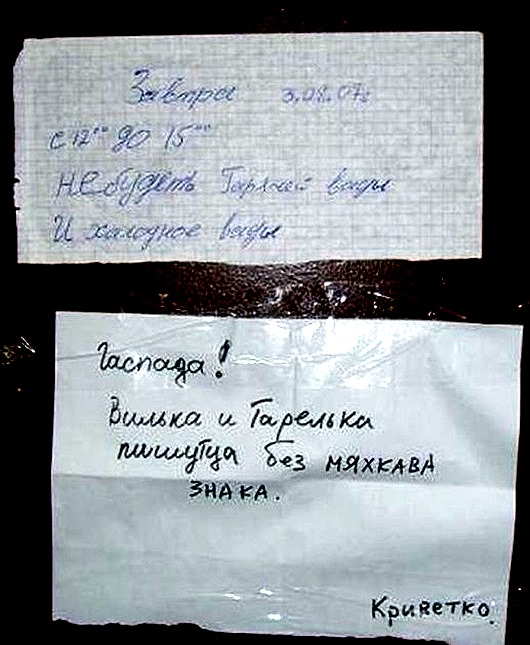 Завтра 3.08.07г
с 12⁰⁰ до 15⁰⁰
НЕ будеть Гарячей вады
И халодное вады
Гаспада!
Вилька и Тарелька
пишутца без мяхкава
знака.
Криветко.